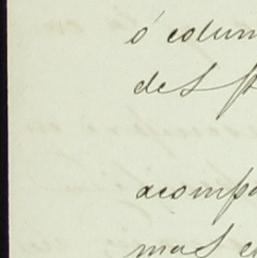 ó colum
des p
acompa
mas e